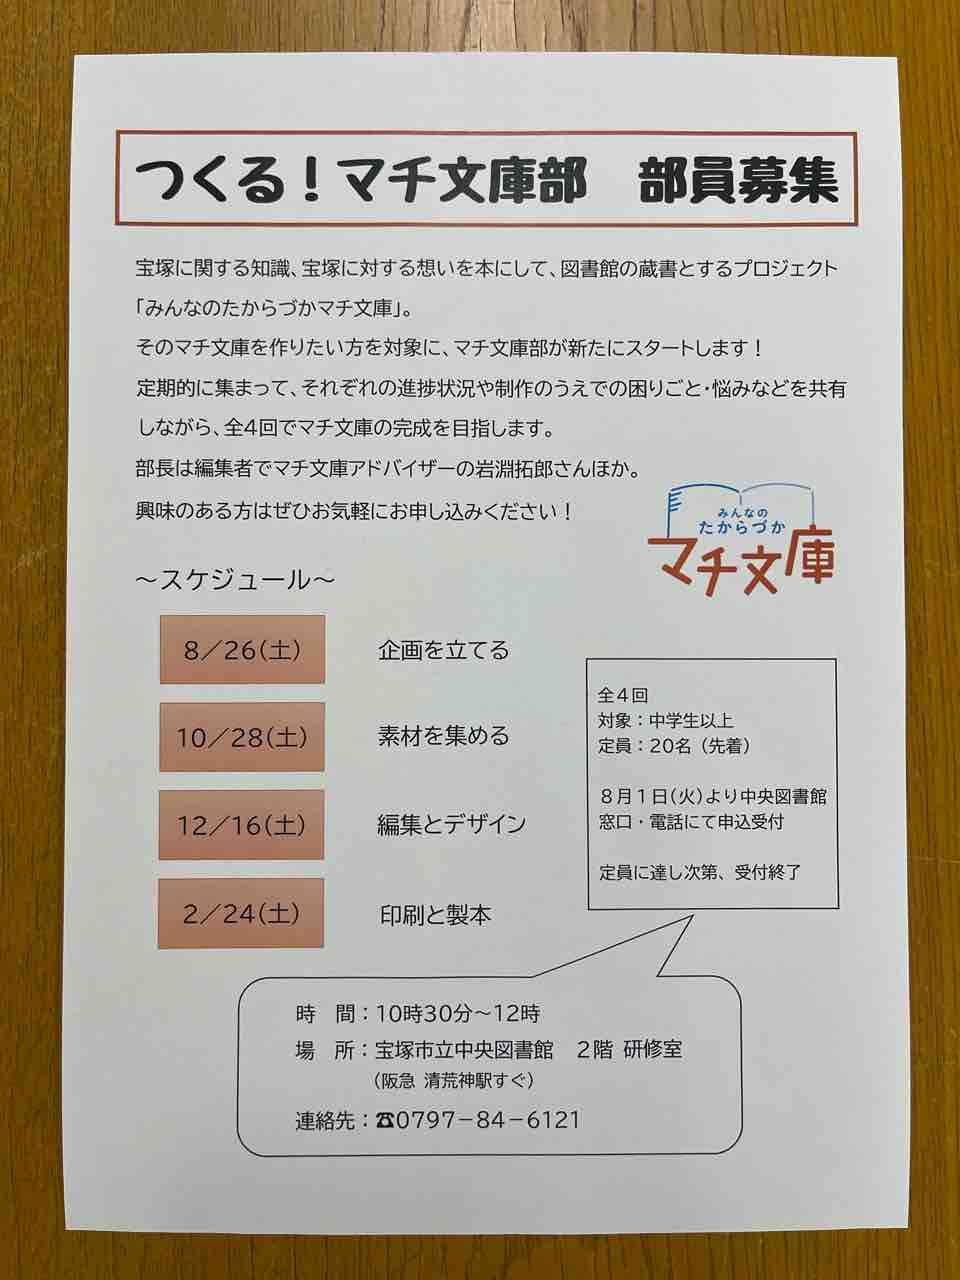 つくる！マチ文庫部　部員募集
宝塚に関する知識、宝塚に対する想いを本にして、図書館の蔵書とするプロジェクト
「みんなのたからづかマチ文庫」。
そのマチ文庫を作りたい方を対象に、マチ文庫部が新たにスタートします！
定期的に集まって、それぞれの進捗状況や制作のうえでの困りごと・悩みなどを共有
しながら、全4回でマチ文庫の完成を目指します。
部長は編集者でマチ文庫アドバイザーの岩淵拓郎さんほか。
興味のある方はぜひお気軽にお申し込みください！
みんなの
たからづか
マチ文庫
～スケジュール～
8／26(土)　企画を立てる
10／28(土)　素材を集める
12／16(土)　編集とデザイン
2／24(土)　印刷と製本
全４回
対象：中学生以上
定員：20名（先着）
８月１日(火)より中央図書館
窓口・電話にて申込受付
定員に達し次第、受付終了
時　間：10時30分～12時
場　所：宝塚市立中央図書館　２階 研修室
（阪急 清荒神駅すぐ）
連絡先：☎0797－84－6121